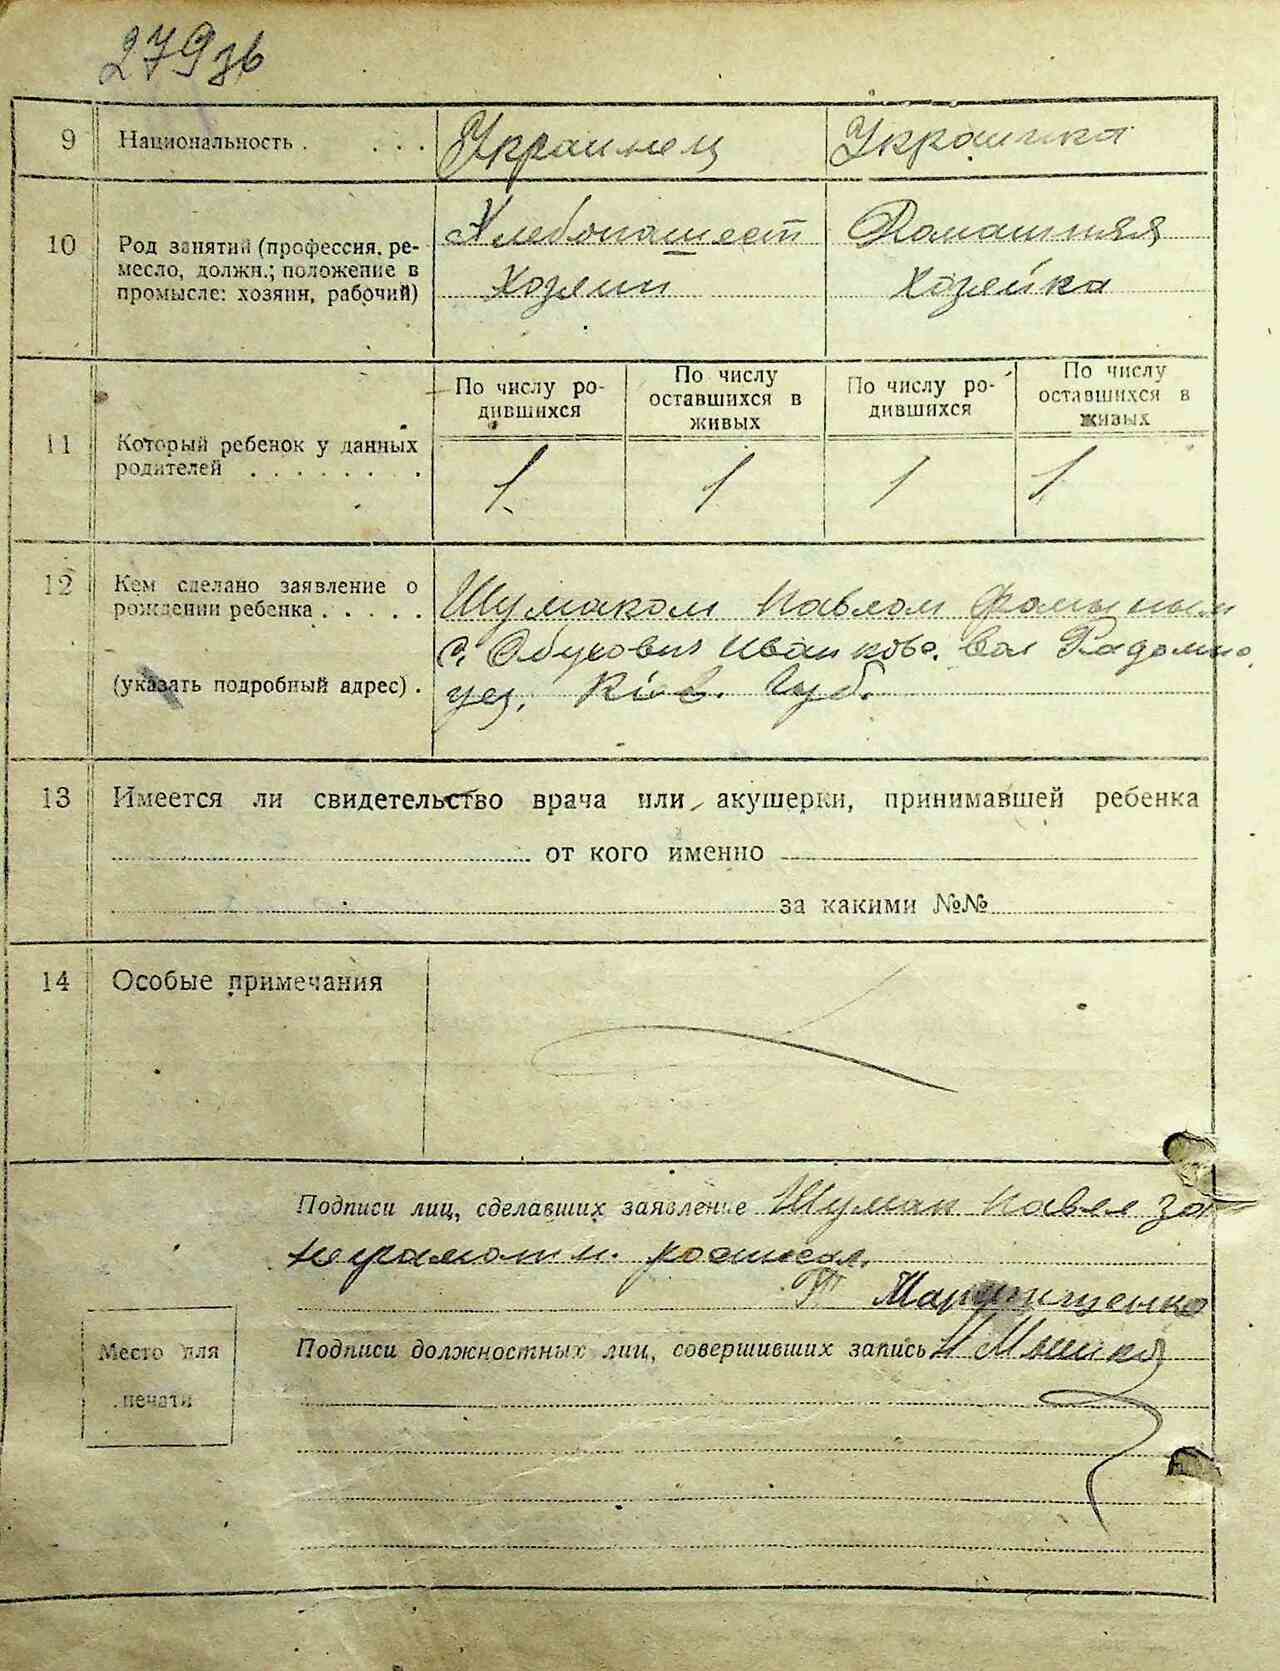 279 зв
9 Национальность . . . . Украинец Украинка
10 Род занятий (профессия, ре-
месло, должн.; положение в
промысле: хозяин, рабочий)
Хлебопашест Домашняя
Хозяин Хозяйка
11 Который ребенок у данных
родителей . . . . . . .
По числу ро-
дившихся
По числу
оставшихся в
живых
По числу ро-
дившихся
По числу
оставшихся в
живых
1 1 1 1
12 Кем сделано заявление о
рождении ребенка . . . . .
(указать подробный адрес) .
Шумаком Павлом
с. Обухович Иванково. Вол Радомыс
уез. Кіев. Губ.
13 Имеется ли свидетельство врача или акушерки, принимавшей ребенка
от кого именно
за какими №№
14 Особые примечания
Подписи лиц, сделавших заявление Шумак Павел за
неграмотн. росписал.
Мартищенко
Подписи должностных лиц, совершивших запись
Место для
печати